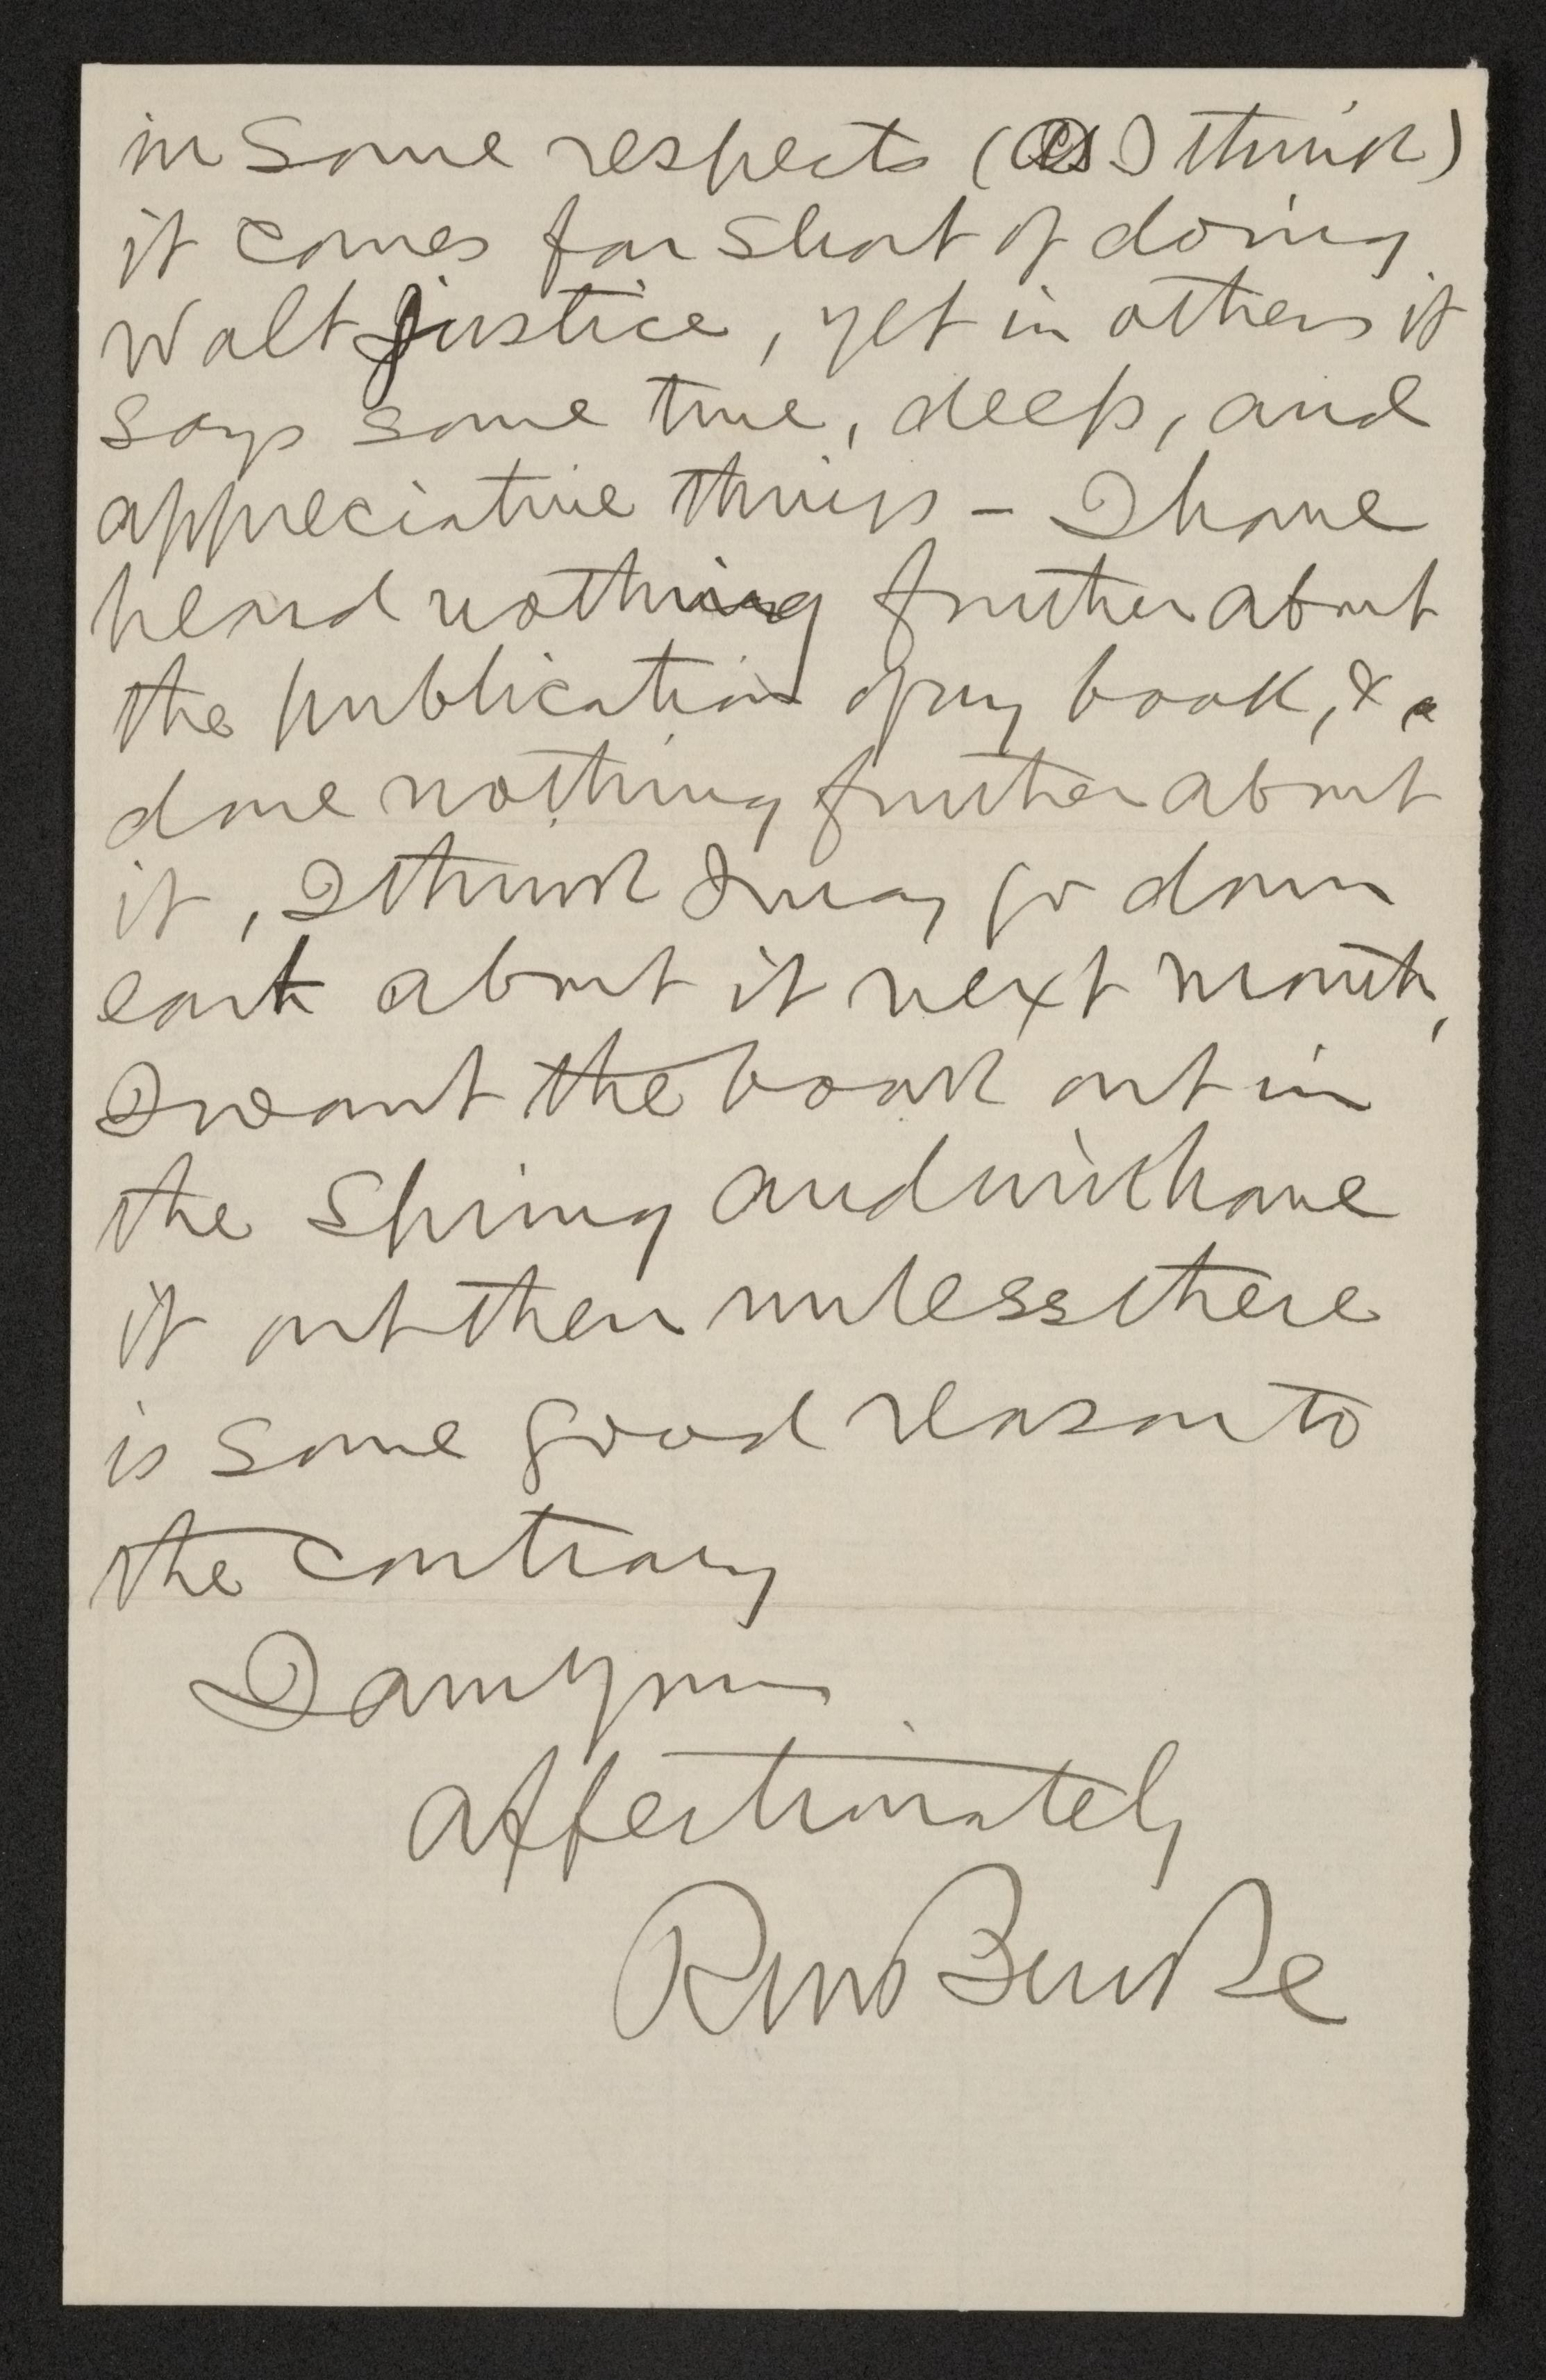 in some respects (as I think)
it comes far short of doing
Walt justice, yet in others it
says some true, deep, and
appreciative things – I have
heard nothing further about
the publication of my book, &
done nothing further about
it, I think I may go down
east about it next month,
I want the book out in
the Spring and will have
it out then unless there
is some good reason to
the contrary
I am your
affectionately
RM Bucke